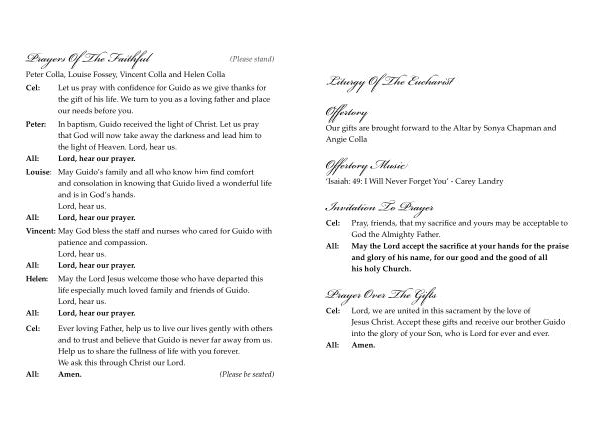 Prayers Of The Faithful (Please stand)
Peter Colla, Louise Fossey, Vincent Colla and Helen Colla
Cel: Let us pray with confidence for Guido as we give thanks for
the gift of his life. We turn to you as a loving father and place
our needs before you.
Peter: In baptism, Guido received the light of Christ. Let us pray
that God will now take away the darkness and lead him to
the light of Heaven. Lord, hear us.
All: Lord, hear our prayer.
Louise: May Guido's family and all who know him find comfort
and consolation in knowing that Guido lived a wonderful life
and is in God's hands.
Lord, hear us.
All: Lord, hear our prayer.
Vincent: May God bless the staff and nurses who cared for Guido with
patience and compassion.
Lord, hear us.
All: Lord, hear our prayer.
Helen: May the Lord Jesus welcome those who have departed this
life especially much loved family and friends of Guido.
Lord, hear us.
All: Lord, hear our prayer.
Cel: Ever loving Father, help us to live our lives gently with others
and to trust and believe that Guido is never far away from us.
Help us to share the fullness of life with you forever.
We ask this through Christ our Lord.
All: Amen. (Please be seated)
Liturgy Of The Eucharist
Offertory
Our gifts are brought forward to the Altar by Sonya Chapman and
Angie Colla
Offertory Music
'Isaiah: 49: I Will Never Forget You' - Carey Landry
Invitation To Prayer
Cel: Pray, friends, that my sacrifice and yours may be acceptable to
God the Almighty Father.
All: May the Lord accept the sacrifice at your hands for the praise
and glory of his name, for our good and the good of all
his holy Church.
Prayer Over The Gifts
Cel: Lord, we are united in this sacrament by the love of
Jesus Christ. Accept these gifts and receive our brother Guido
into the glory of your Son, who is Lord for ever and ever.
All: Amen.